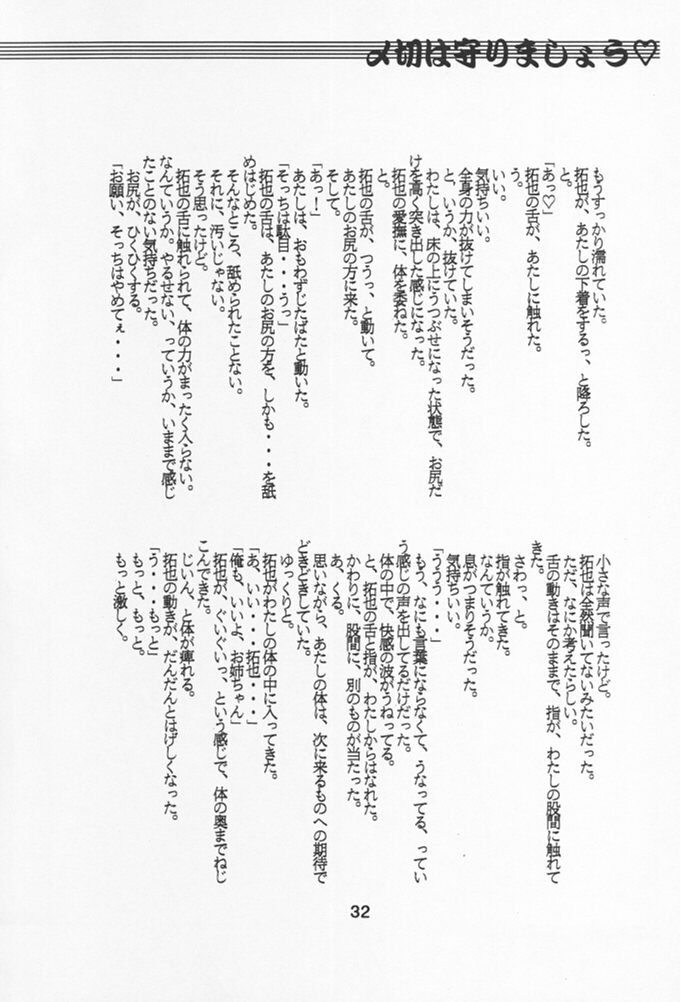 〆切は守りましょう♡
もうすっかり濡れていた。
拓也が、あたしの下着をするっ、と降ろした。
と。
「あっ♡」
拓也の舌が、あたしに触れた。
う。
いい。
気持ちいい。
全身の力が抜けてしまいそうだった。
と、いうか、抜けていた。
わたしは、床の上にうつぶせになった状態で、お尻だ
けを高く突き出した感じになった。
拓也の愛撫に、体を委ねた。
と。
拓也の舌が、つうっ、と動いて。
あたしのお尻の方に来た。
そして。
「あっ！」
あたしは、おもわずじたばたと動いた。
「そっちは駄目・・・うっ」
拓也の舌は、あたしのお尻の方を、しかも・・・を舐
めはじめた。
そんなところ、舐められたことない。
それに、汚いじゃない。
そう思ったけど。
拓也の舌に触れられて、体の力がまったく入らない。
なんていうか。やるせない、っていうか、いままで感じ
たことのない気持ちだった。
お尻が、ひくひくする。
「お願い、そっちはやめてぇ・・・」
小さな声で言ったけど。
拓也は全然聞いてないみたいだった。
ただ、なにか考えたらしい。
舌の動きはそのままで、指が、わたしの股間に触れて
きた。
さわっ、と。
指が触れてきた。
なんていうか。
息がつまりそうだった。
気持ちいい。
「ううう・・・」
もう、なにも言葉にならなくて、うなってる、ってい
う感じの声を出してるだけだった。
体の中で、快感の波がうねってる。
と、拓也の舌と指が、わたしからはなれた。
かわりに、股間に、別のものが当たった。
あ、くる。
思いながら、あたしの体は、次に来るものへの期待で
どきどきしていた。
ゆっくりと。
拓也がわたしの体の中に入ってきた。
「あ、いい・・・拓也・・・」
「俺も、いいよ、お姉ちゃん」
拓也が、ぐいぐいっ、という感じで、体の奥までねじ
こんできた。
じいん、と体が痺れる。
拓也の動きが、だんだんとはげしくなった。
「う・・・もっと」
もっと、もっと。
もっと激しく。
32